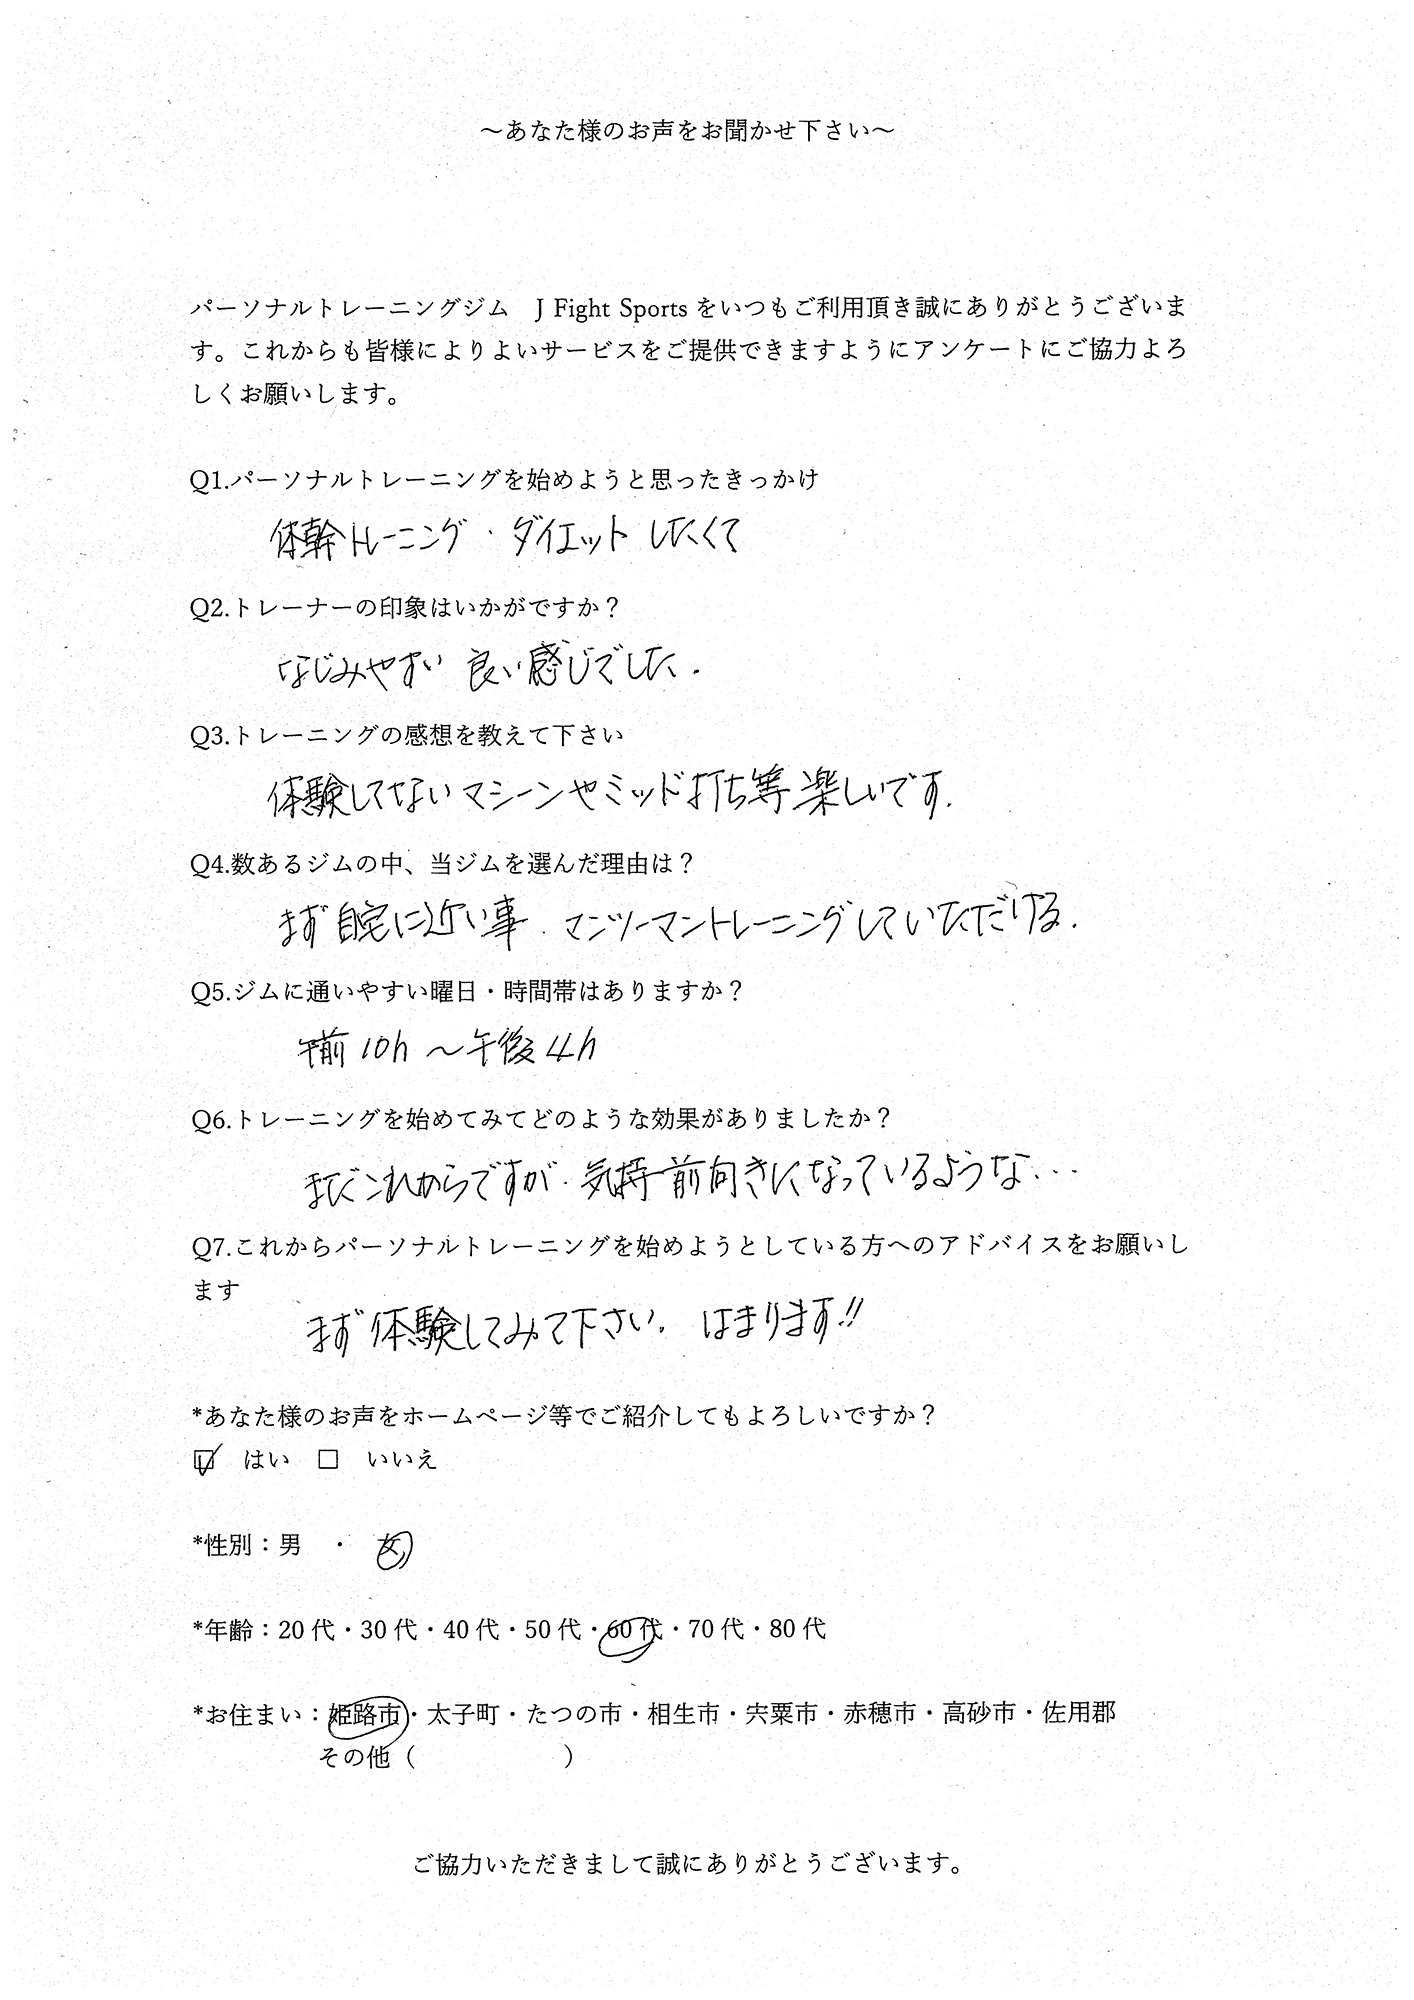 ～あなた様のお声をお聞かせ下さい～
パーソナルトレーニングジム　J Fight Sports をいつもご利用頂き誠にありがとうございま
す。これからも皆様によりよいサービスをご提供できますようにアンケートにご協力よろ
しくお願いします。
Q1.パーソナルトレーニングを始めようと思ったきっかけ
体幹トレーニング・ダイエット したくて
Q2.トレーナーの印象はいかがですか？
なじみやすい 良い感じでした.
Q3.トレーニングの感想を教えて下さい
体験してないマシーンやミッド打ち等楽しいです.
Q4.数あるジムの中、当ジムを選んだ理由は？
まず自宅に近い事. マンツーマントレーニングしていただける.
Q5.ジムに通いやすい曜日・時間帯はありますか？
午前10h ～午後4h
Q6.トレーニングを始めてみてどのような効果がありましたか？
まだこれからですが. 気持前向きになっているような...
Q7.これからパーソナルトレーニングを始めようとしている方へのアドバイスをお願いし
ます
まず体験してみて下さい. はまります!!
*あなた様のお声をホームページ等でご紹介してもよろしいですか？
☑ はい □ いいえ
*性別：男　・　女
*年齢：20 代・30 代・40 代・50 代・60 代・70 代・80 代
*お住まい：姫路市・太子町・たつの市・相生市・宍粟市・赤穂市・高砂市・佐用郡
その他（　　　　　　）
ご協力いただきまして誠にありがとうございます。